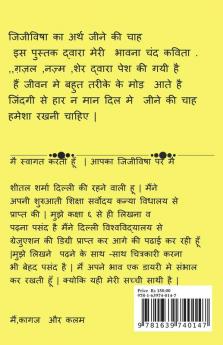 जिजीविषा का अर्थ जीने की चाह
इस पुस्तक द्वारा मेरी भावना चंद कविता .
,,ग़ज़ल ,नज़्म ,शेर द्वारा पेश की गयी है
हैं जीवन मे बहुत तरीके के मोड आते है
जिंदगी से हार न मान दिल मे जीने की चाह
हमेशा रखनी चाहिए |
मैं स्वागत करती हूँ | आपका जिजीविषा पर मैं
शीतल शर्मा दिल्ली की रहने वाली हू | मैंने
अपनी शुरुआती शिक्षा सर्वोदय कन्या विधालय से
प्राप्त की | मुझे कक्षा ६ से ही लिखना व
पढ़ना पसंद है मैंने दिल्ली विश्वविद्यालय से
ग्रेजुएशन की डिग्री प्राप्त कर आगे की पढाई कर रही हूँ
|मुझे लिखने पढने के साथ -साथ चित्रकारी करना
भी बेहद पसंद है | मैं अपने भाव एक डायरी मे संभाल
कर रखती हूँ | क्योकि यही मेरी सच्ची साथी है |
मैं,कागज और कलम
Price Rs 150.00
ISBN 978-1-63974-014-7
9 781639 740147